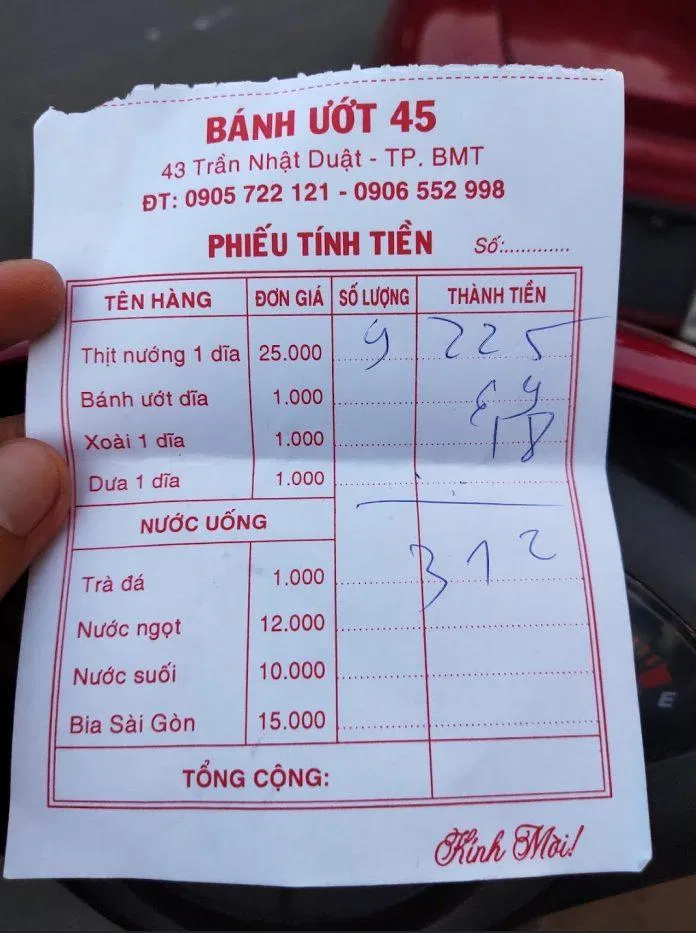 BÁNH ƯỚT 45
43 Trần Nhật Duật - TP. BMT
ĐT: 0905 722 121 - 0906 552 998
PHIẾU TÍNH TIỀN Số:............
TÊN HÀNG ĐƠN GIÁ SỐ LƯỢNG THÀNH TIỀN
Thịt nướng 1 dĩa 25.000 9 225
Bánh ướt dĩa 1.000 69
Xoài 1 dĩa 1.000 18
Dưa 1 dĩa 1.000
NƯỚC UỐNG
312
Trà đá 1.000
Nước ngọt 12.000
Nước suối 10.000
Bia Sài Gòn 15.000
TỔNG CỘNG:
Kính Mời!
E